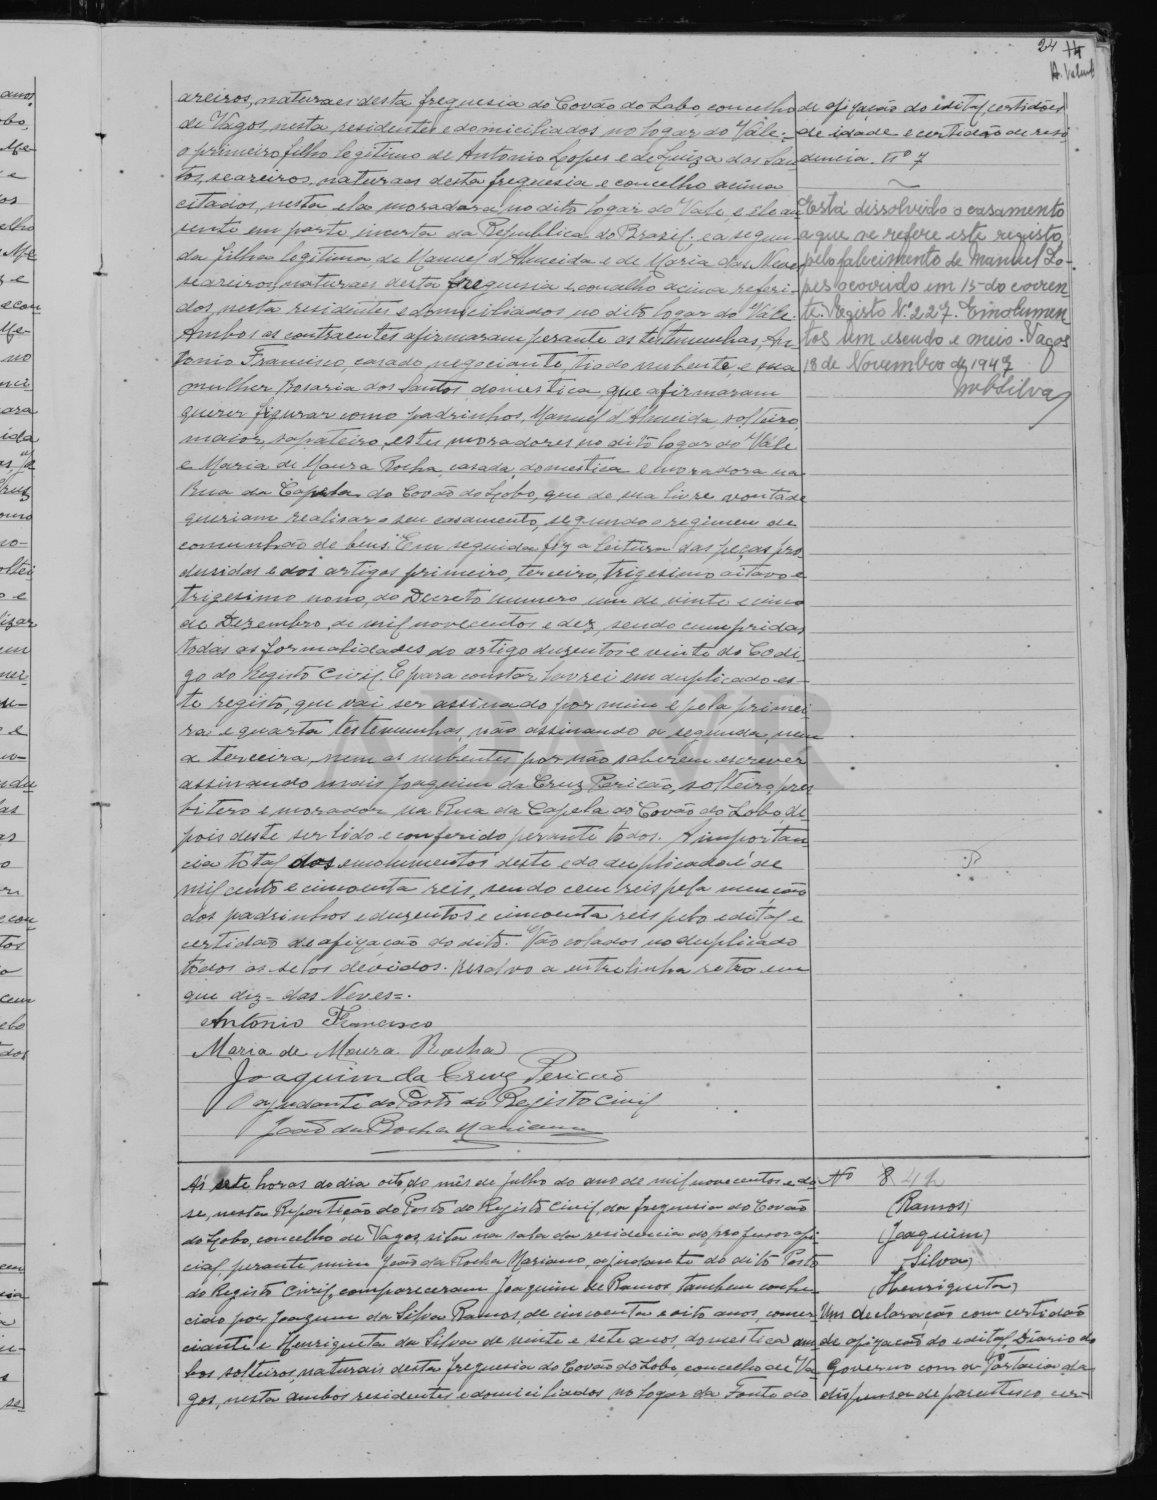 24
areiros, naturaes desta freguesia do Covão do Lobo, concelho
de Vagos, nesta residentes e domiciliados no logar do Vale:
o primeiro filho legitimo de Antonio Lopes e de Luiza dos San
tos, seareiros, naturaes desta freguesia e concelho acima
citados, nesta ela moradora, no dito logar do Vale e ele au
sente em parte incerta da Republica do Brasil: e a segun
da filha legitima de Manuel d'Almeida e de Maria das Neves
seareiros, naturaes desta freguesia e concelho acima referi-
dos, nesta residentes e domiciliados no dito logar do Vale.
Ambos os contraentes afirmaram perante as testemunhas, An-
tonio Francisco, casado, negociante, tio do nubente e sua
mulher, Rosaria dos Santos, domestica, que afirmaram
querer figurar como padrinhos, Manuel d'Almeida, solteiro,
maior, sapateiro, estes moradores no dito logar do Vale
e Maria de Moura Rocha, casada, domestica e moradora na
Rua da Capela do Covão do Lobo, que de sua livre vontade
queriam realisar o seu casamento, segundo o regimen de
comunhão de bens. Em seguida fiz a leitura das peças pro
dusidas e dos artigos primeiro, terceiro, trigesimo oitavo e
trigesimo nono, do Decreto numero um de vinte e cinco
de Dezembro de mil novecentos e dez, sendo cumpridas
todas as formalidades do artigo duzentos e vinte do Codi-
go do Registo Civil. E para constar lavrei em duplicado es-
te registo, que vai ser assinado por mim e pela primei-
ra e quarta testemunhas, não assinando a segunda, nem
a terceira, nem os nubentes por não saberem escrever
assinando mais Joaquim da Cruz Pericão, solteiro, pres
bitero e morador na Rua da Capela do Covão do Lobo, de
pois deste ser lido e conferido perante todos. A importan
cia total dos emolumentos deste e do duplicado é de
mil cento e cincoenta reis, sendo cem reis pela menção
dos padrinhos e duzentos e cincoenta reis pelo edital e
certidão de afixação do dito. Vão colados no duplicado
todos os selos devidos. Resalvo a entrelinha retro em
que diz = das Neves =.
Antonio Francisco
Maria de Moura Rocha
Joaquim da Cruz Pericão
O ajudante do Posto do Registo Civil
João da Rocha Mariano
de afixação do edital, certidões
de idade e certidão de resi-
dencia. Nº 7
Está dissolvido o casamento
a que se refere este registo,
pelo falecimento de Manuel Lo-
pes ocorrido em 15 do corren-
te. Registo Nº 227. Emolumen
tos um escudo e meio. Vagos
18 de Novembro de 1947
ADAVR
Ás sete horas do dia oito, do mês de Julho do ano de mil novecentos e do-
se, nesta Repartição do Posto do Registo Civil, da freguesia do Covão
do Lobo, concelho de Vagos, sita na sala da residencia do professor ofi-
cial, perante mim João da Rocha Mariano, ajudante do dito Posto
do Registo Civil, compareceram Joaquim de Ramos, tambem conhe
cido por Joaquim da Silva Ramos, de cincoenta e oito anos, comer-
ciante e Henriqueta da Silva de vinte e sete anos, domestica am-
bos solteiros, naturais desta freguesia do Covão do Lobo, concelho de Va-
gos, nesta ambos residentes e domiciliados no logar da Fonte do
Nº 8
(Ramos)
(Joaquim)
(Silva)
(Henriqueta)
Um declaração com certidão
de afixação do edital, Diario do
Governo com a Portaria da
dispensa de parentesco, cer-